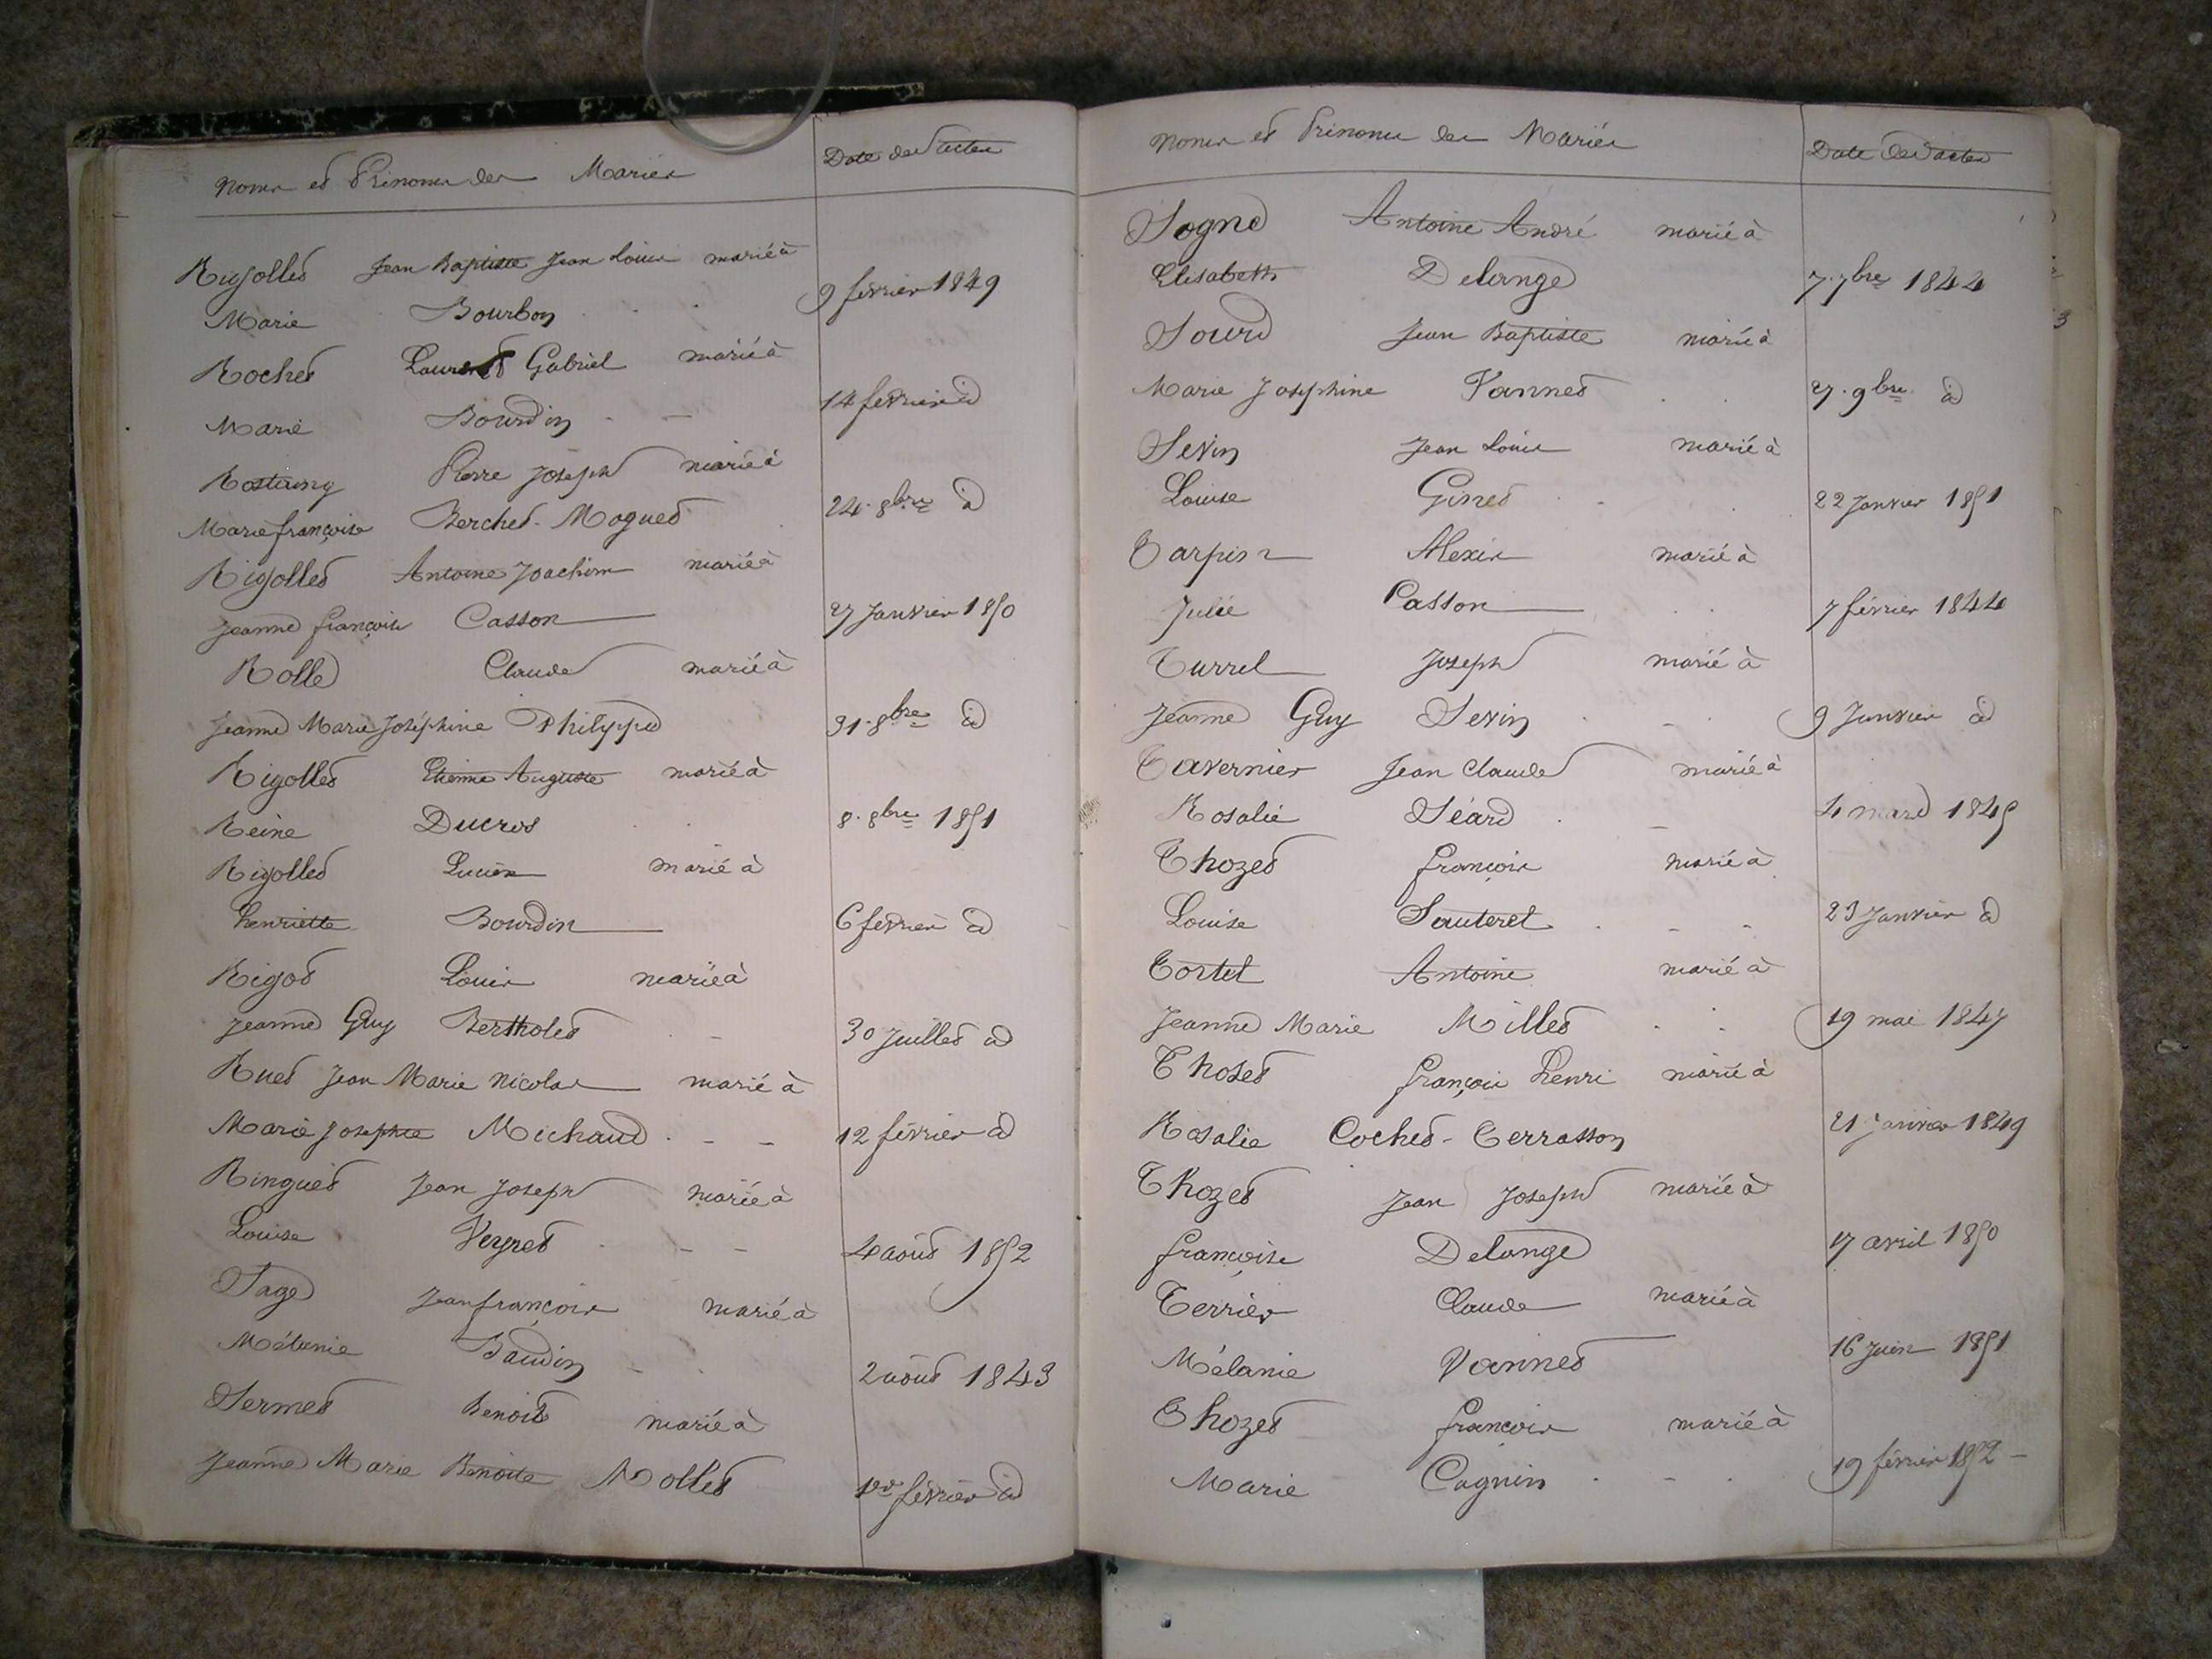 Noms et Prénoms des Mariés Date des actes
Rigollet Jean Baptiste Jean Louis marié à
Marie Bourbon 9 février 1849
Rochet Laurent Gabriel marié à
Marie Bourdin 14 février id
Rostaing Pierre Joseph marié à
Marie françoise Berchet-Moguet 24. 8bre id
Rigollet Antoine Joachim marié à
Jeanne françoise Casson 27 Janvier 1850
Rolle Claude marié à
Jeanne Marie Joséphine Philippe 31. 8bre id
Rigollet Etienne Auguste marié à
Reine Ducros 8. 8bre 1851
Rigollet Lucien marié à
henriette Bourdin 6 février id
Rigot Louis marié à
Jeanne Guy Bertholet 30 Juillet id
Ruet Jean Marie Nicolas marié à
Marie Josephte Michaud 12 février id
Ringuet Jean Joseph marié à
Louise Veyret 4 août 1852
Sage Jean françois marié à
Mélanie Baudin 2 août 1843
Sermet Benoit marié à
Jeanne Marie Benoite Mollet 1er février id
Noms et Prénoms des Mariés Date des actes
Sogno Antoine André marié à
Elisabeth Delange 7. 7bre 1844
Sourd Jean Baptiste marié à
Marie Josephine Vannet 27. 9bre id
Sevin Jean Louis marié à
Louise Ginet 22 Janvier 1851
Tarpin Alexis marié à
Julie Casson 7 février 1844
Turrel Joseph marié à
Jeanne Guy Sevin 9 Janvier id
Tavernier Jean Claude marié à
Rosalie Séard 4 mars 1845
Thozet françois marié à
Louise Sauteret 23 Janvier id
Tortel Antoine marié à
Jeanne Marie Millet 19 mai 1847
Thozet françois henri marié à
Rosalie Cochet-Terrasson 21 Janvier 1849
Thozet Jean Joseph marié à
françoise Delange 17 avril 1850
Terrier Claude marié à
Mélanie Vannet 16 Juin 1851
Thozet françois marié à
Marie Cagnin 19 février 1852